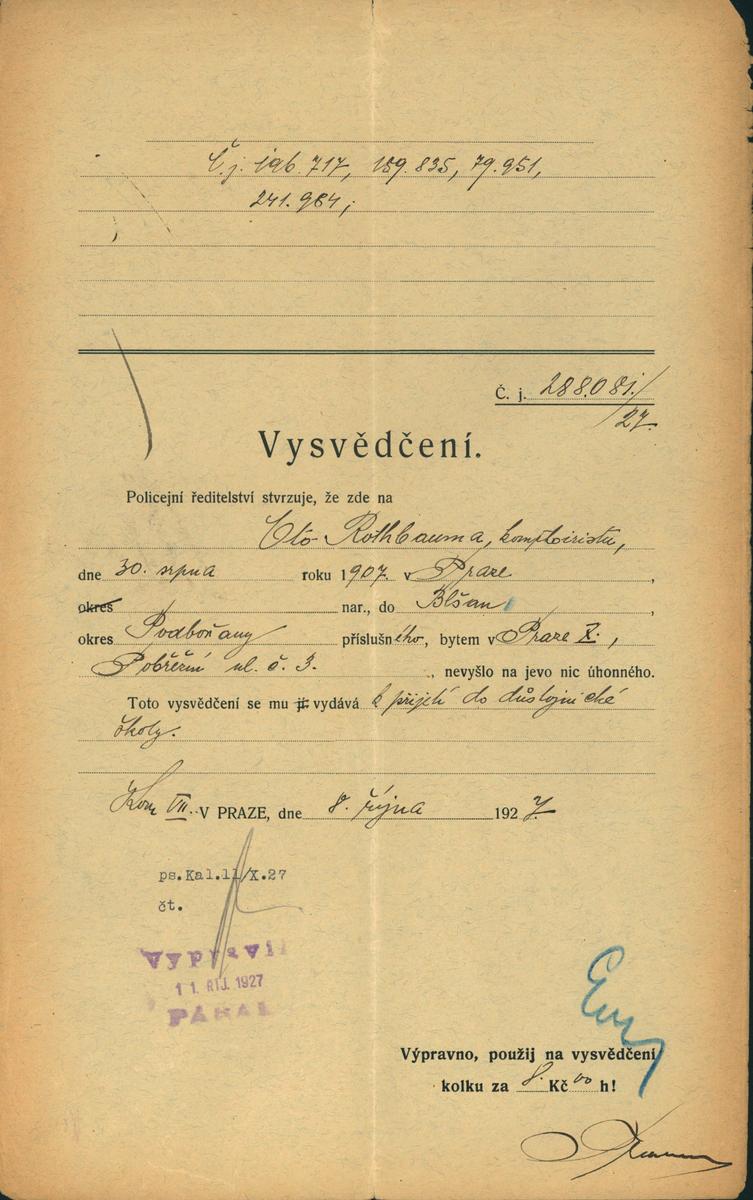 Č. j. 196.717, 159.835, 79.951,
241.984;
Č. j. 288.081./
/27.
Vysvědčení.
Policejní ředitelství stvrzuje, že zde na
Otto Rothbauma, komptoiristu,
dne 30. srpna roku 1907. v Praze,
okres nar., do Blšan,
okres Podbořany příslušného, bytem v Praze X.,
Pobřežní ul. č. 3., nevyšlo na jevo nic úhonného.
Toto vysvědčení se mu jí vydává k přijetí do důstojnické
školy.
Kom VII. V PRAZE, dne 8. října 1927.
ps.Kal.11/X.27
čt.
Vypravil
11. ŘÍJ. 1927
Výpravno, použij na vysvědčení
kolku za 8. Kč 00 h!